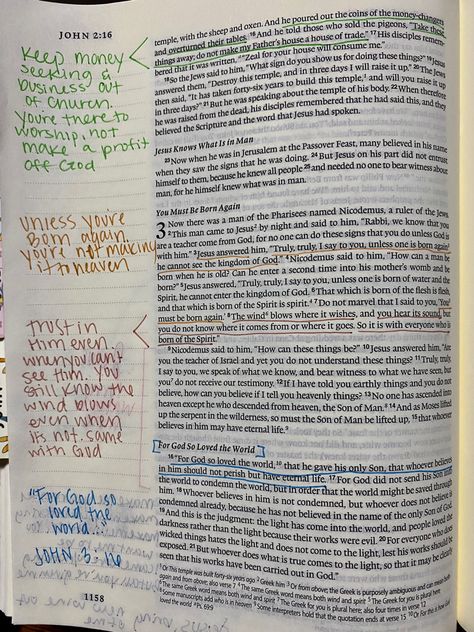 JOHN 2:16
Keep money
seeking &
business out
of church.
You're there to
worship, not
make a profit
off God
Unless you're
Born again
you're not making
it to heaven
Trust in
Him even
when you can't
see Him. You
still know the
wind blows
even when
it's not. same
with God
"For God so
loved the
world..."
JOHN 3:16
1158
temple, with the sheep and oxen. And he poured out the coins of the money-changers
and overturned their tables. 16 And he told those who sold the pigeons, "Take these
things away; do not make my Father's house a house of trade." 17 His disciples remem-
bered that it was written, "Zeal for your house will consume me."
18 So the Jews said to him, "What sign do you show us for doing these things?" 19 Jesus
answered them, "Destroy this temple, and in three days I will raise it up." 20 The Jews
then said, "It has taken forty-six years to build this temple, and will you raise it up
in three days?" 21 But he was speaking about the temple of his body. 22 When therefore
he was raised from the dead, his disciples remembered that he had said this, and they
believed the Scripture and the word that Jesus had spoken.
Jesus Knows What Is in Man
23 Now when he was in Jerusalem at the Passover Feast, many believed in his name
when they saw the signs that he was doing. 24 But Jesus on his part did not entrust
himself to them, because he knew all people 25 and needed no one to bear witness about
man, for he himself knew what was in man.
You Must Be Born Again
3 Now there was a man of the Pharisees named Nicodemus, a ruler of the Jews.
2 This man came to Jesus by night and said to him, "Rabbi, we know that you
are a teacher come from God, for no one can do these signs that you do unless God is
with him." 3 Jesus answered him, "Truly, truly, I say to you, unless one is born again
he cannot see the kingdom of God." 4 Nicodemus said to him, "How can a man be
born when he is old? Can he enter a second time into his mother's womb and be
born?" 5 Jesus answered, "Truly, truly, I say to you, unless one is born of water and the
Spirit, he cannot enter the kingdom of God. 6 That which is born of the flesh is flesh,
and that which is born of the Spirit is spirit. 7 Do not marvel that I said to you, 'You
must be born again.' 8 The wind blows where it wishes, and you hear its sound, but
you do not know where it comes from or where it goes. So it is with everyone who is
born of the Spirit."
9 Nicodemus said to him, "How can these things be?" 10 Jesus answered him, "Are
you the teacher of Israel and yet you do not understand these things? 11 Truly, truly,
I say to you, we speak of what we know, and bear witness to what we have seen, but
you do not receive our testimony. 12 If I have told you earthly things and you do not
believe, how can you believe if I tell you heavenly things? 13 No one has ascended into
heaven except he who descended from heaven, the Son of Man. 14 And as Moses lifted
up the serpent in the wilderness, so must the Son of Man be lifted up, 15 that whoever
believes in him may have eternal life.
For God So Loved the World
16 "For God so loved the world, that he gave his only Son, that whoever believes
in him should not perish but have eternal life. 17 For God did not send his Son into
the world to condemn the world, but in order that the world might be saved through
him. 18 Whoever believes in him is not condemned, but whoever does not believe is
condemned already, because he has not believed in the name of the only Son of God.
19 And this is the judgment: the light has come into the world, and people loved the
darkness rather than the light because their works were evil. 20 For everyone who does
wicked things hates the light and does not come to the light, lest his works should be
exposed. 21 But whoever does what is true comes to the light, so that it may be clearly
seen that his works have been carried out in God."